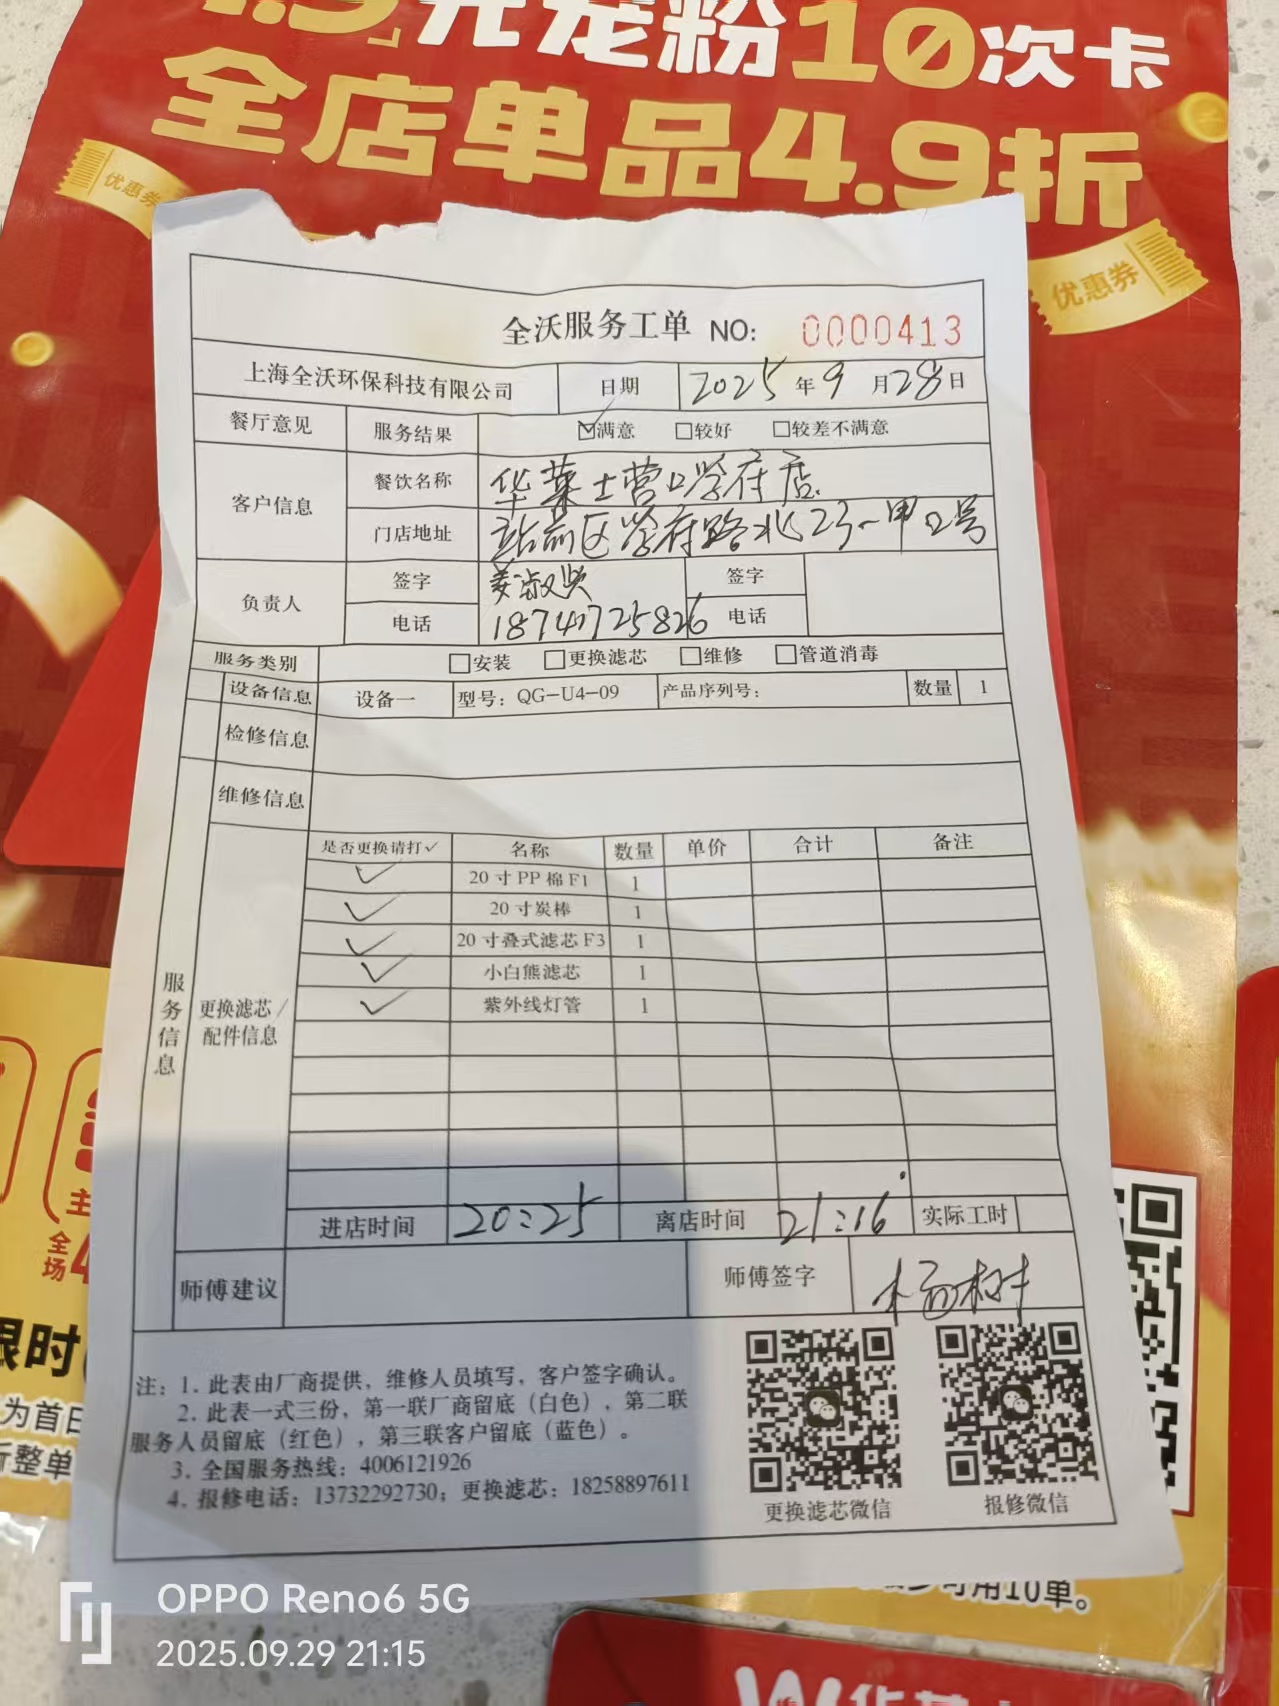 元宠粉10次卡
全店单品4.9折
优惠券
优惠券
全沃服务工单 NO: 0000413
上海全沃环保科技有限公司 日期 2025年9月28日
餐厅意见 服务结果 ☑满意 □较好 □较差不满意
客户信息 餐饮名称 华莱士营口学府店
门店地址 站前区学府路北23-甲2号
负责人 签字 姜淑 签字
电话 18741725826 电话
服务类别 □安装 □更换滤芯 □维修 □管道消毒
设备信息 设备一 型号：QG-U4-09 产品序列号： 数量 1
检修信息
维修信息
服务信息
更换滤芯/配件信息
是否更换请打✓ 名称 数量 单价 合计 备注
✓ 20寸PP棉F1 1
✓ 20寸炭棒 1
✓ 20寸叠式滤芯F3 1
✓ 小白熊滤芯 1
✓ 紫外线灯管 1
进店时间 20:25 离店时间 21:16 实际工时
师傅建议 师傅签字 杨树
注：1. 此表由厂商提供，维修人员填写，客户签字确认。
2. 此表一式三份，第一联厂商留底（白色），第二联
服务人员留底（红色），第三联客户留底（蓝色）。
3. 全国服务热线：4006121926
4. 报修电话：13732292730；更换滤芯：18258897611
更换滤芯微信 报修微信
主
全场4
限时
为首
整单
可用10单。
OPPO Reno6 5G
2025.09.29 21:15